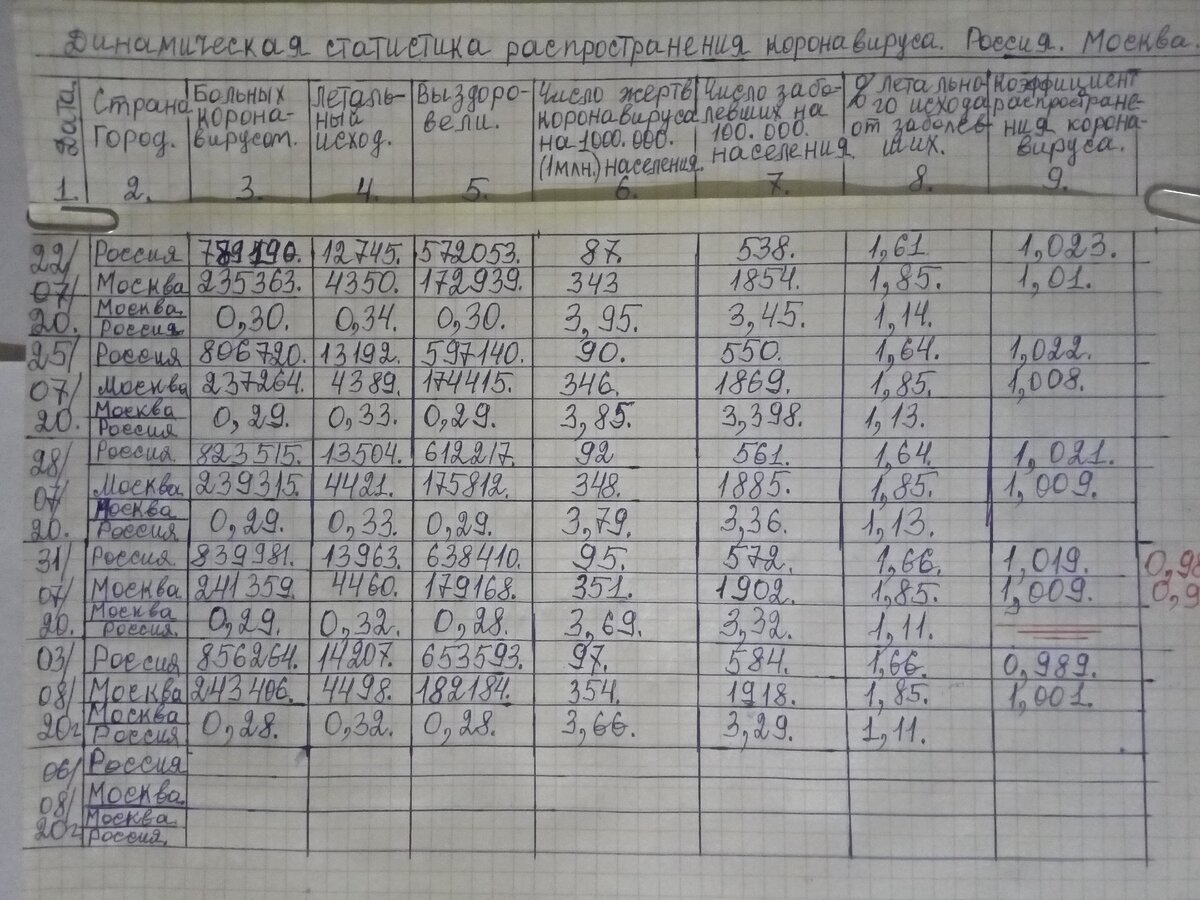 Динамическая статистика распространения коронавируса. Россия. Москва.
Дата. Страна Город. Больных коронавирусом. Летальный исход. Выздоровели. Число жертв коронавируса на 1000.000. (1млн.) населения. Число заболевших на 100.000. населения. % летального исхода от заболевших. Коэффициент распространения коронавируса.
1. 2. 3. 4. 5. 6. 7. 8. 9.
22/ Россия 12745. 572053. 87. 538. 1,61. 1,023.
07/ Москва 235363. 4350. 172939. 343 1854. 1,85. 1,01.
20. Москва Россия 0,30. 0,34. 0,30. 3,95. 3,45. 1,14.
25/ Россия 806720. 13192. 597140. 90. 550. 1,64. 1,022.
07/ Москва 237264. 4389. 174415. 346. 1869. 1,85. 1,008.
20. Москва Россия 0,29. 0,33. 0,29. 3,85. 3,398. 1,13.
28/ Россия 823515. 13504. 612217. 92 561. 1,64. 1,021.
07/ Москва 239315. 4421. 175812. 348. 1885. 1,85. 1,009.
20. Москва Россия 0,29. 0,33. 0,29. 3,79. 3,36. 1,13.
31/ Россия 839981. 13963. 638410. 95. 572. 1,66. 1,019.
07/ Москва 241359. 4460. 179168. 351. 1902. 1,85. 1,009.
20. Москва Россия. 0,29. 0,32. 0,28. 3,69. 3,32. 1,11.
03/ Россия 856264. 14207. 653593. 97. 584. 1,66. 0,989.
08/ Москва 243406. 4498. 182184. 354. 1918. 1,85. 1,001.
20г Москва Россия 0,28. 0,32. 0,28. 3,66. 3,29. 1,11.
06/ Россия
08/ Москва
20г Москва Россия.